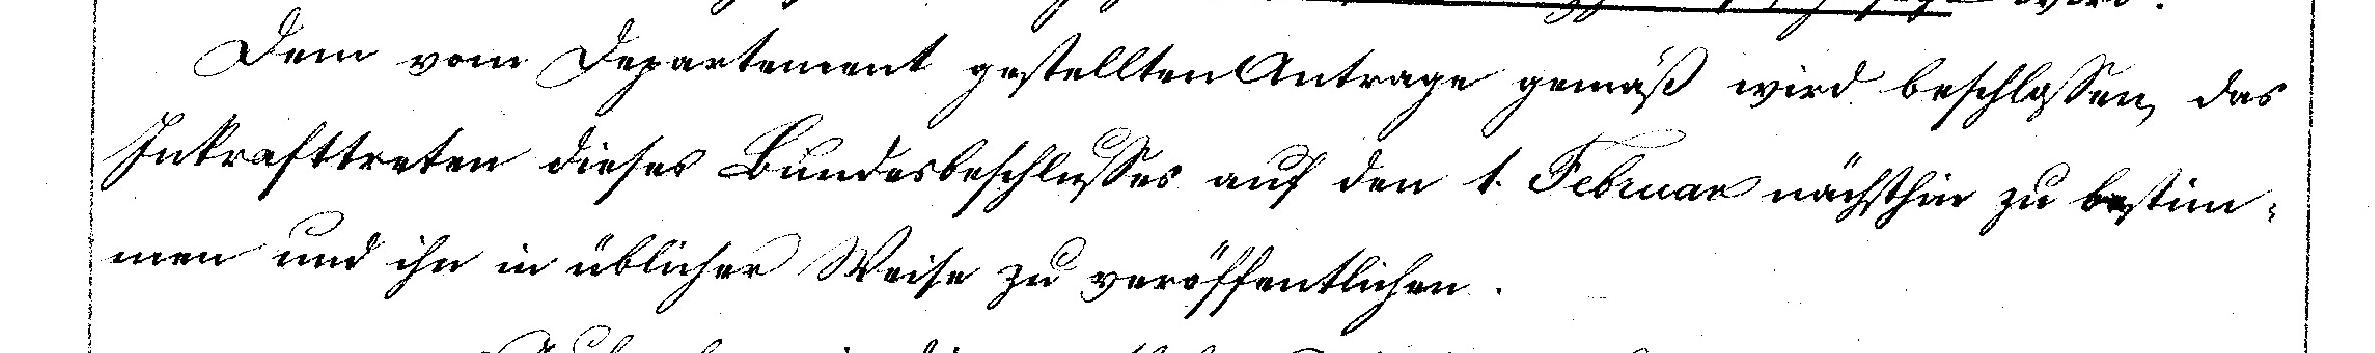 Dem vom Departement gestellten Antrage gemäß wird beschlossen, das
Inkrafttreten dieses Bundesbeschlusses auf den 1. Februar nächsthin zu bestim-
men und ihn in üblicher Weise zu veröffentlichen.